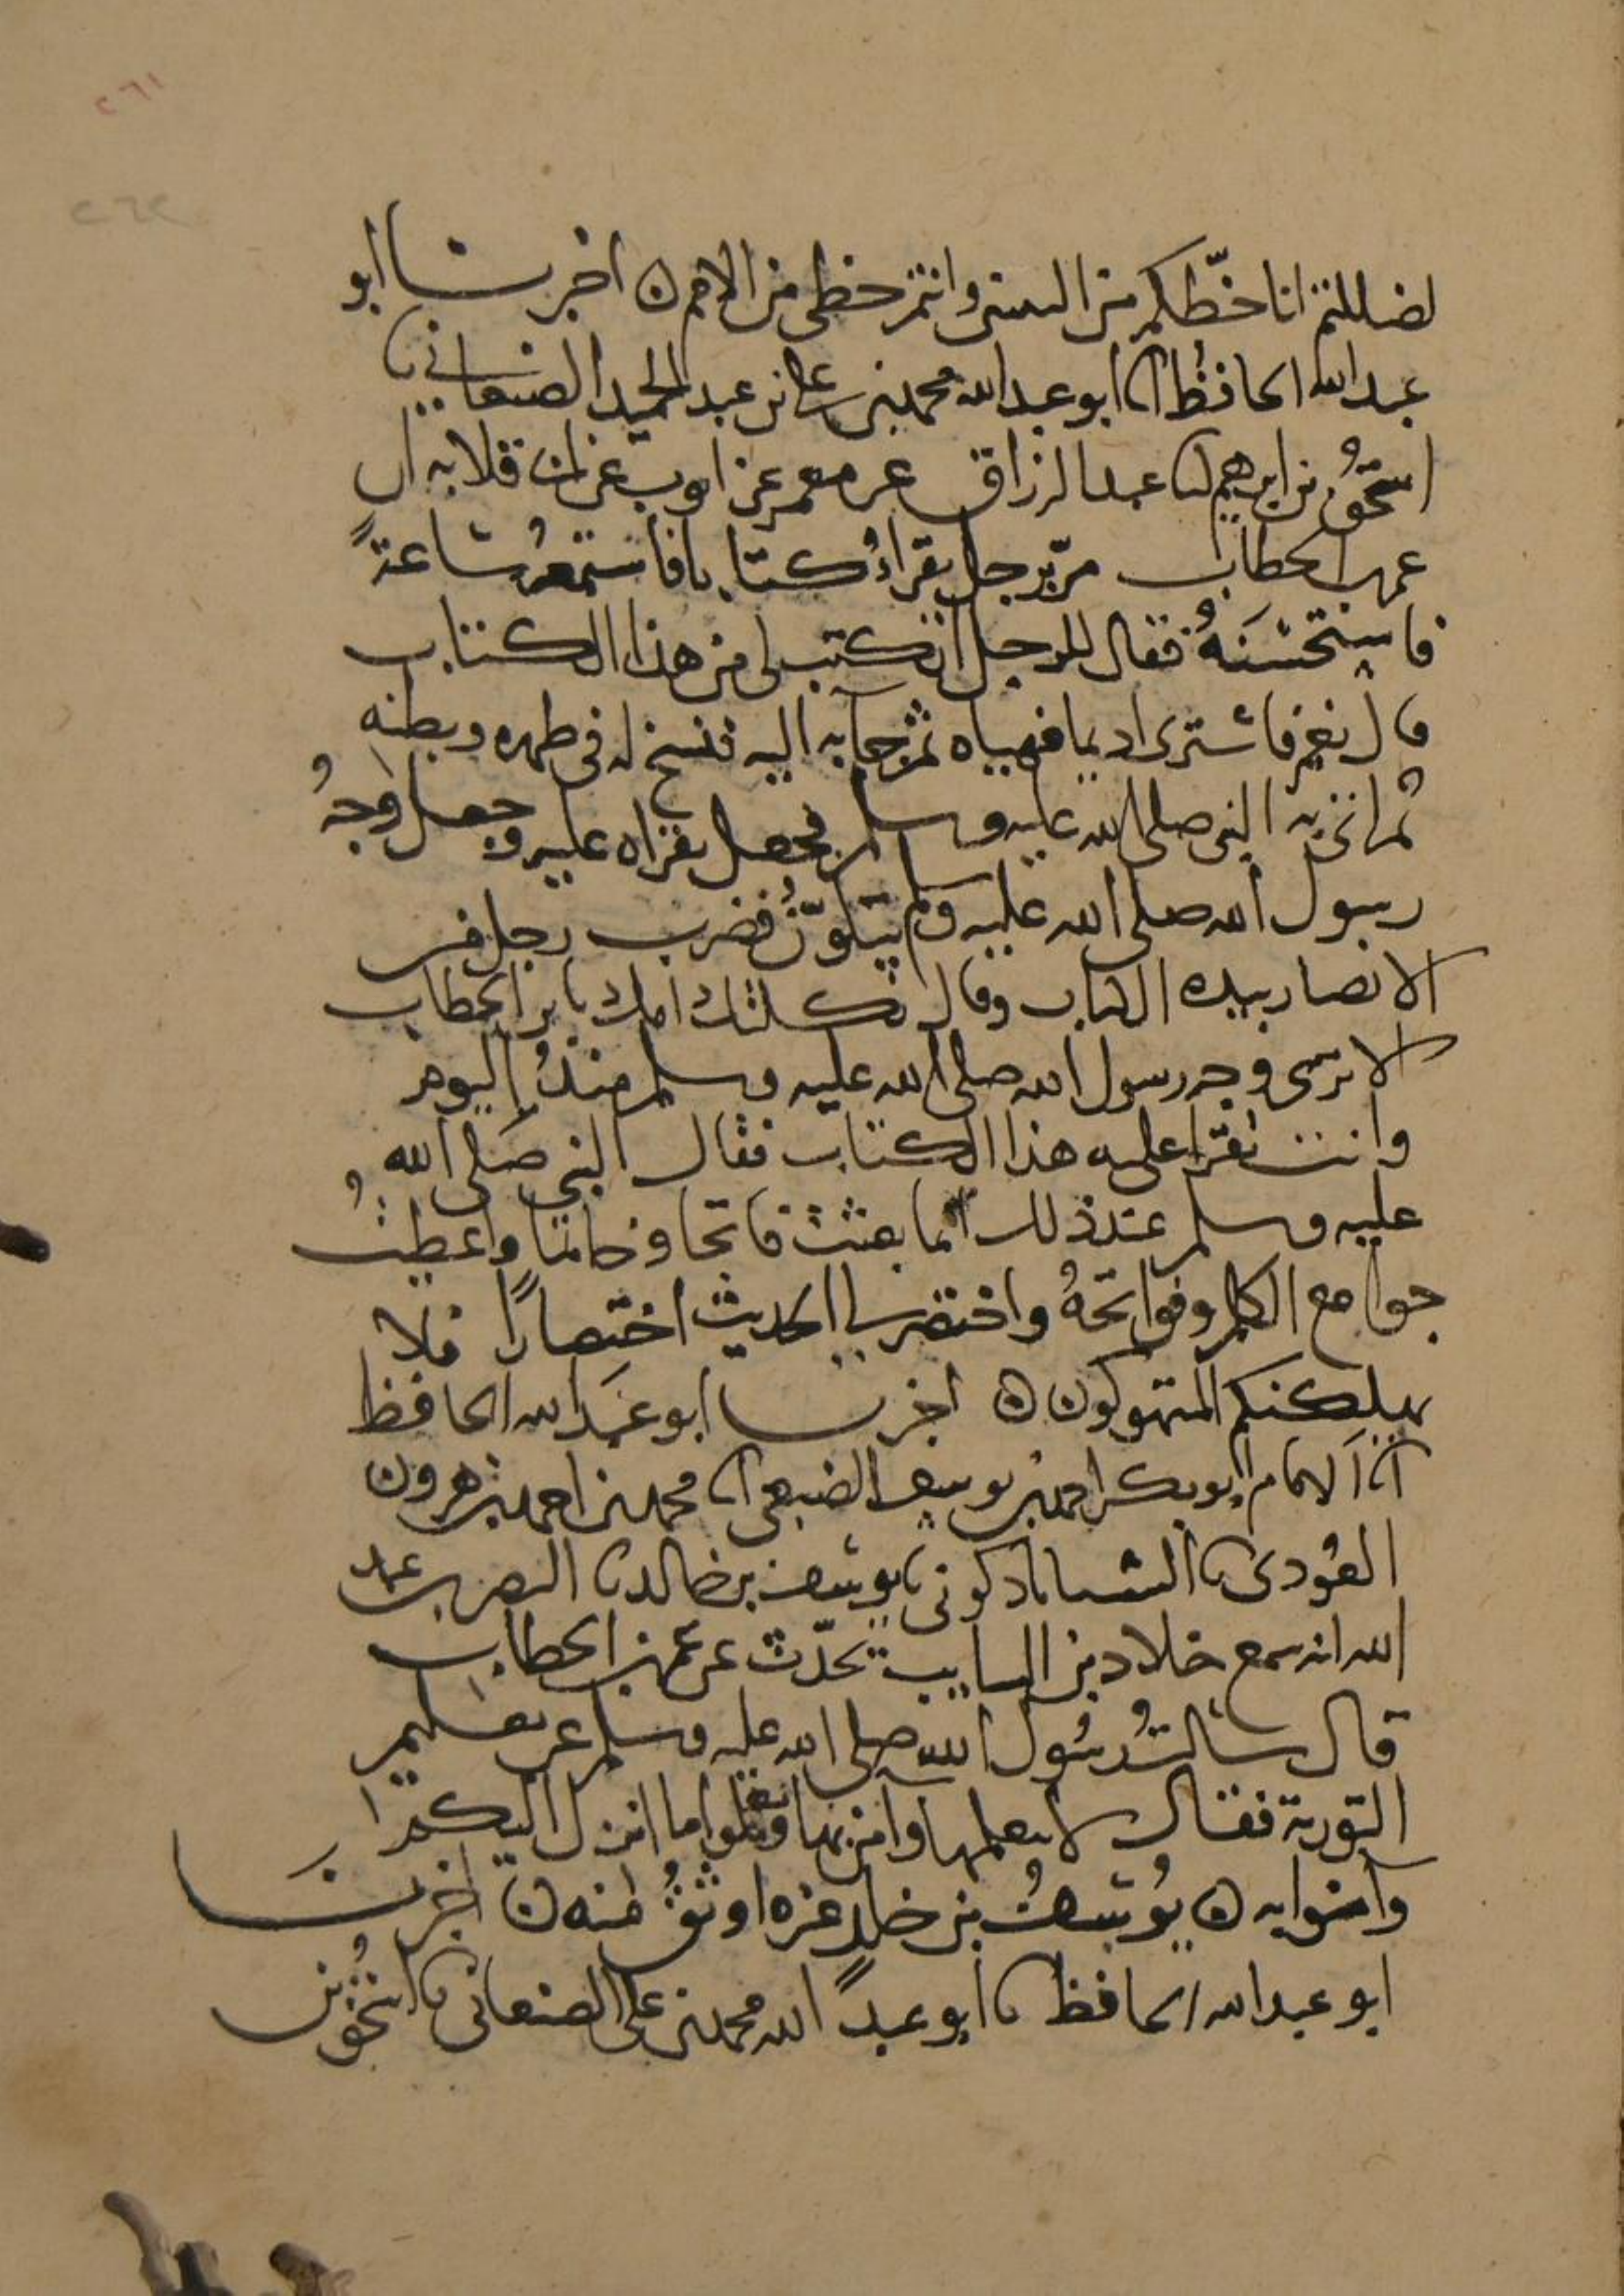 ٢٦١
٢٦٢
لضللتم انا حظكم من النبيين وانتم حظي من الامم ه اخبرنا ابو
عبد الله الحافظ انا ابو عبد الله محمد بن علي بن عبد الحميد الصنعاني نا
اسحق بن ابرهيم انا عبد الرزاق عن معمر عن ايوب عن ابي قلابه ان
عمر بن الخطاب مر برجل يقراُ كتابا فاستمعه ساعةً
فاستحسنَهُ فقال للرجل اتكتب لي من هذا الكتاب
قال نعم فاشترى اديما فهياه ثم جا به اليه فنسخ له في ظهره وبطنه
ثم اتى به النبي صلى الله عليه وسلم فجعل يقراه عليه وجعل وجهُ
رسول الله صلى الله عليه وسلم يتلوّنُ فضرب رجل من
الانصار بيده الكتاب وقال ثكلتك امك يا بن الخطاب
الا ترى وجه رسول الله صلى الله عليه وسلم منذُ اليوم
وانت تقرا عليه هذا الكتاب فقال النبي صَلى الله
عليه وسلم عند ذلك انما بعثت فاتحا وخاتما واعطيتُ
جوامع الكلم وفواتحهُ واختصر لي الحديث اختصارًا فلا
يهلكنكم المتهوكون ه اخبرنا ابو عَبد الله الحافظ
انا الامام ابو بكر احمد بن يوسف الضبعي انا محمد بن احمد بن هرون
العُودي نا الشاذكوني نا يوسف بن خالد نا النضر بن عبد
الله انه سمع خلاد بن السايب يحدّث عن عمر بن الخطاب
قال سالتُ رسُول الله صلى الله عليه وسلم عن تعليم
التورية فقال لا تعلمها وآمن بها وتعلموا ما انزل اليكم
وآمنوا به ه يُوسفُ بن خلد غيره اوثقُ منه ه اخبرنَا
ابو عبد الله الحافظ نا ابو عبد الله محمد بن علي الصنعاني نا اسحٰق بن